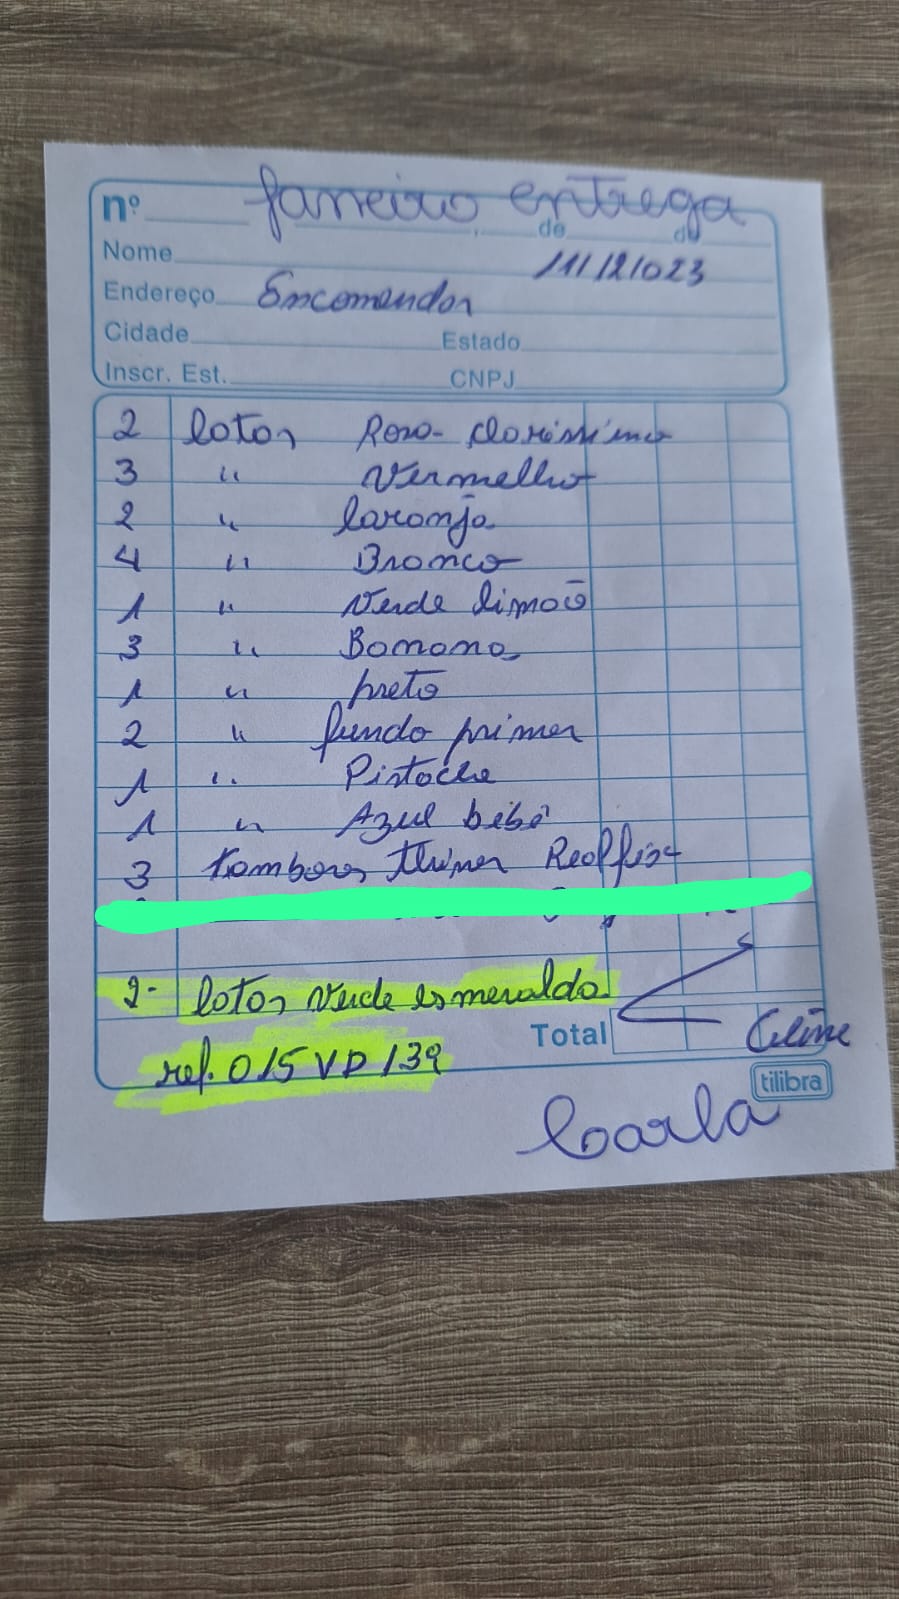 nº Janeiro entrega
de de
Nome 11/12/023
Endereço Encomendas
Cidade Estado
Inscr. Est. CNPJ
2 latas Rosa claríssimo
3 " Vermelho
2 " laranja
4 " Branco
1 " Verde limão
3 " Banana
1 " preto
2 " fundo primer
1 " Pistache
1 " Azul bebê
3 Tambores Thiner Realfix
2- latas Verde esmeralda
Total Celine
ref. 015 VD 139
tilibra
Carla